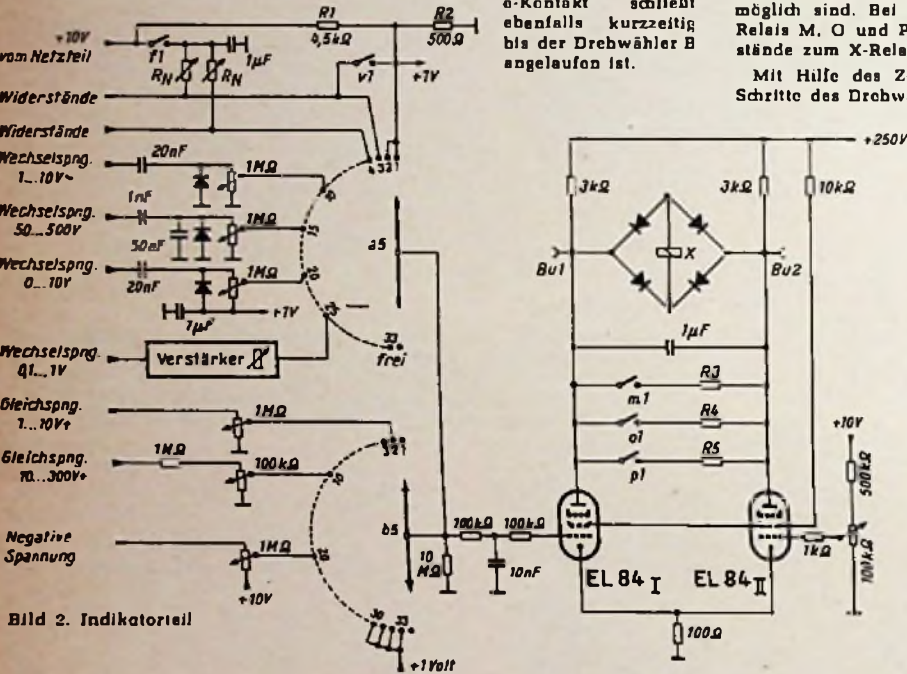 o-Kontakt schließt
ebenfalls kurzzeitig
bis der Drehwähler B
angelaufen ist.
möglich sind. Bei
Relais M, O und P
stände zum X-Rela
Mit Hilfe des Z
Schritte des Drehw
+10V
vom Netzteil
f1
R1
4,5kΩ
R2
500Ω
1μF
RN
RN
v1
+1V
Widerstände
Widerstände
4 3 2 1
Wechselspng.
1...10V~
20nF
1MΩ
10
Wechselspng.
50...500V
1nF
50nF
1MΩ
15
Wechselspng.
0...10V
20nF
1MΩ
20
1μF
+1V
25
a5
33
frei
Wechselspng.
0,1...1V
Verstärker
Gleichspng.
1...10V+
1MΩ
3 2 1
Gleichspng.
10...300V+
1MΩ
100kΩ
10
Negative
Spannung
1MΩ
20
+10V
b5
30
33
+1Volt
10
MΩ
100kΩ
100kΩ
10nF
+250V
3kΩ
3kΩ
10kΩ
Bu1
X
Bu2
1μF
m1
R3
o1
R4
p1
R5
EL 84 I
EL 84 II
100Ω
1kΩ
+10V
500kΩ
100kΩ
Bild 2. Indikatorteil